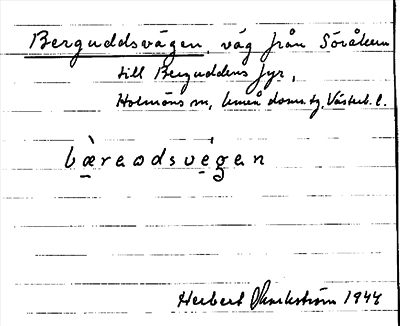 Berguddsvägen, väg från Söråkern
till Berguddens fyr,
Holmöns sn, Umeå doms.tg, Västerb. l.
bæ̀rɐɷdsvégen
Herbert Markström 1944